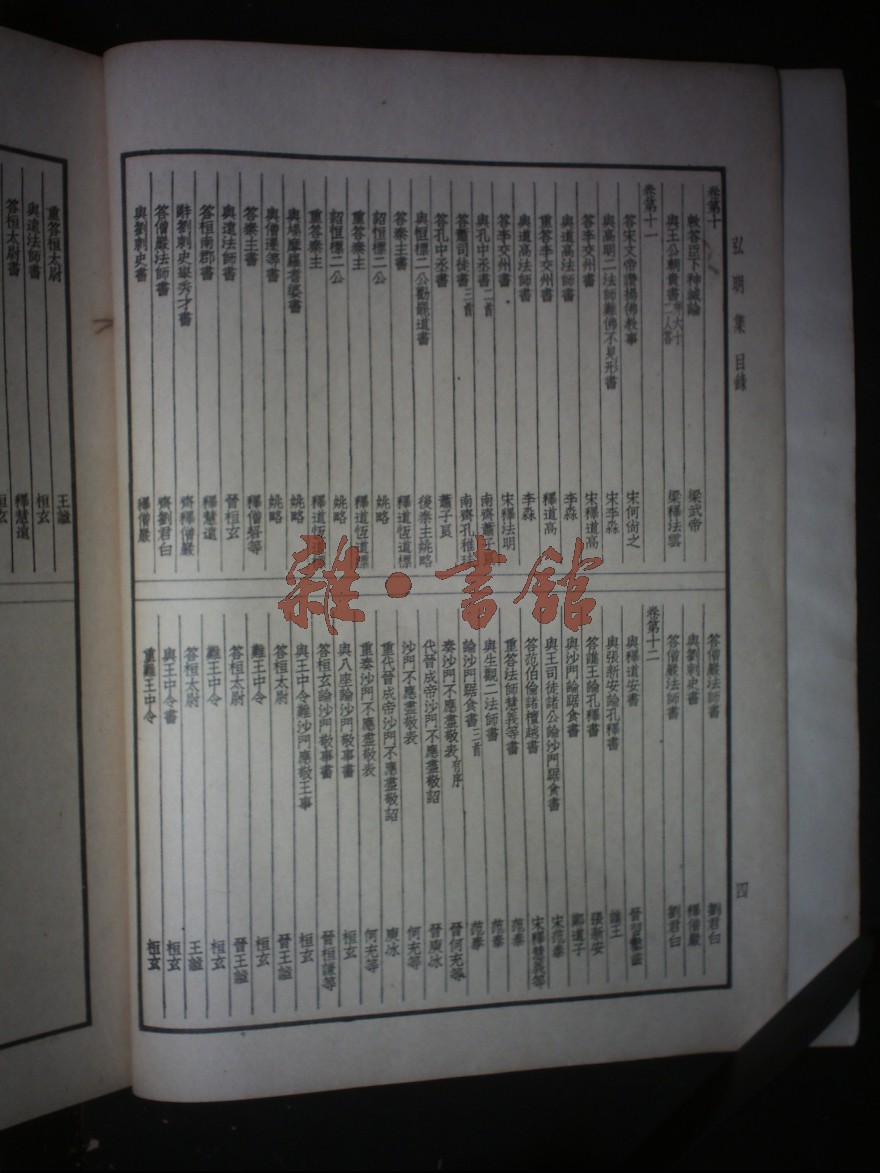 弘明集目錄
四
卷第十
敕答臣下神滅論 梁武帝
與王公朝貴書 并六十二人答 梁釋法雲
卷第十一
答宋文帝讚揚佛教事 宋何尙之
與高明二法師難佛不見形書 宋李淼
答李交州書 宋釋道高
與道高法師書 李淼
重答李交州書 釋道高
與道高法師書 李淼
答李交州書 宋釋法明
與孔中丞書二首 南齊蕭子良
答蕭司徒書三首 南齊孔稚珪
答孔中丞書 蕭子良
與恒標二公勸罷道書 後秦主姚略
答秦主書 釋道恆道標
詔恒標二公 姚略
重答秦主 釋道恆道標
詔恒標二公 姚略
重答秦主 釋道恆道標
與鳩摩羅耆婆書 姚略
與僧遷等書 姚略
答秦主書 釋僧䂮等
與遠法師書 晉桓玄
答桓南郡書 釋慧遠
辭劉刺史舉秀才書 齊釋僧巖
答僧巖法師書 齊劉君白
與劉刺史書 釋僧巖
答僧巖法師書 劉君白
與劉刺史書 釋僧巖
答僧巖法師書 劉君白
卷第十二
與釋道安書 晉習鑿齒
與張新安論孔釋書 譙王
答譙王論孔釋書 張新安
與沙門論踞食書 鄭道子
與王司徒諸公論沙門踞食書 宋范泰
答范伯倫諸檀越書 宋釋慧義等
重答法師慧義等書 范泰
與生觀二法師書 范泰
論沙門踞食書三首 范泰
奏沙門不應盡敬表 有序 晉何充等
代晉成帝沙門不應盡敬詔 晉庾冰
沙門不應盡敬表 何充等
重代晉成帝沙門不應盡敬詔 庾冰
重奏沙門不應盡敬表 何充等
與八座論沙門敬事書 桓玄
答桓玄論沙門敬事書 晉桓謙等
與王中令難沙門應敬王事 桓玄
答桓太尉 晉王謐
難王中令 桓玄
答桓太尉 晉王謐
難王中令 桓玄
答桓太尉 王謐
與王中令書 桓玄
重難王中令 桓玄
重答桓太尉 王謐
與遠法師書 桓玄
答桓太尉書 釋慧遠
桓玄
雜·書館